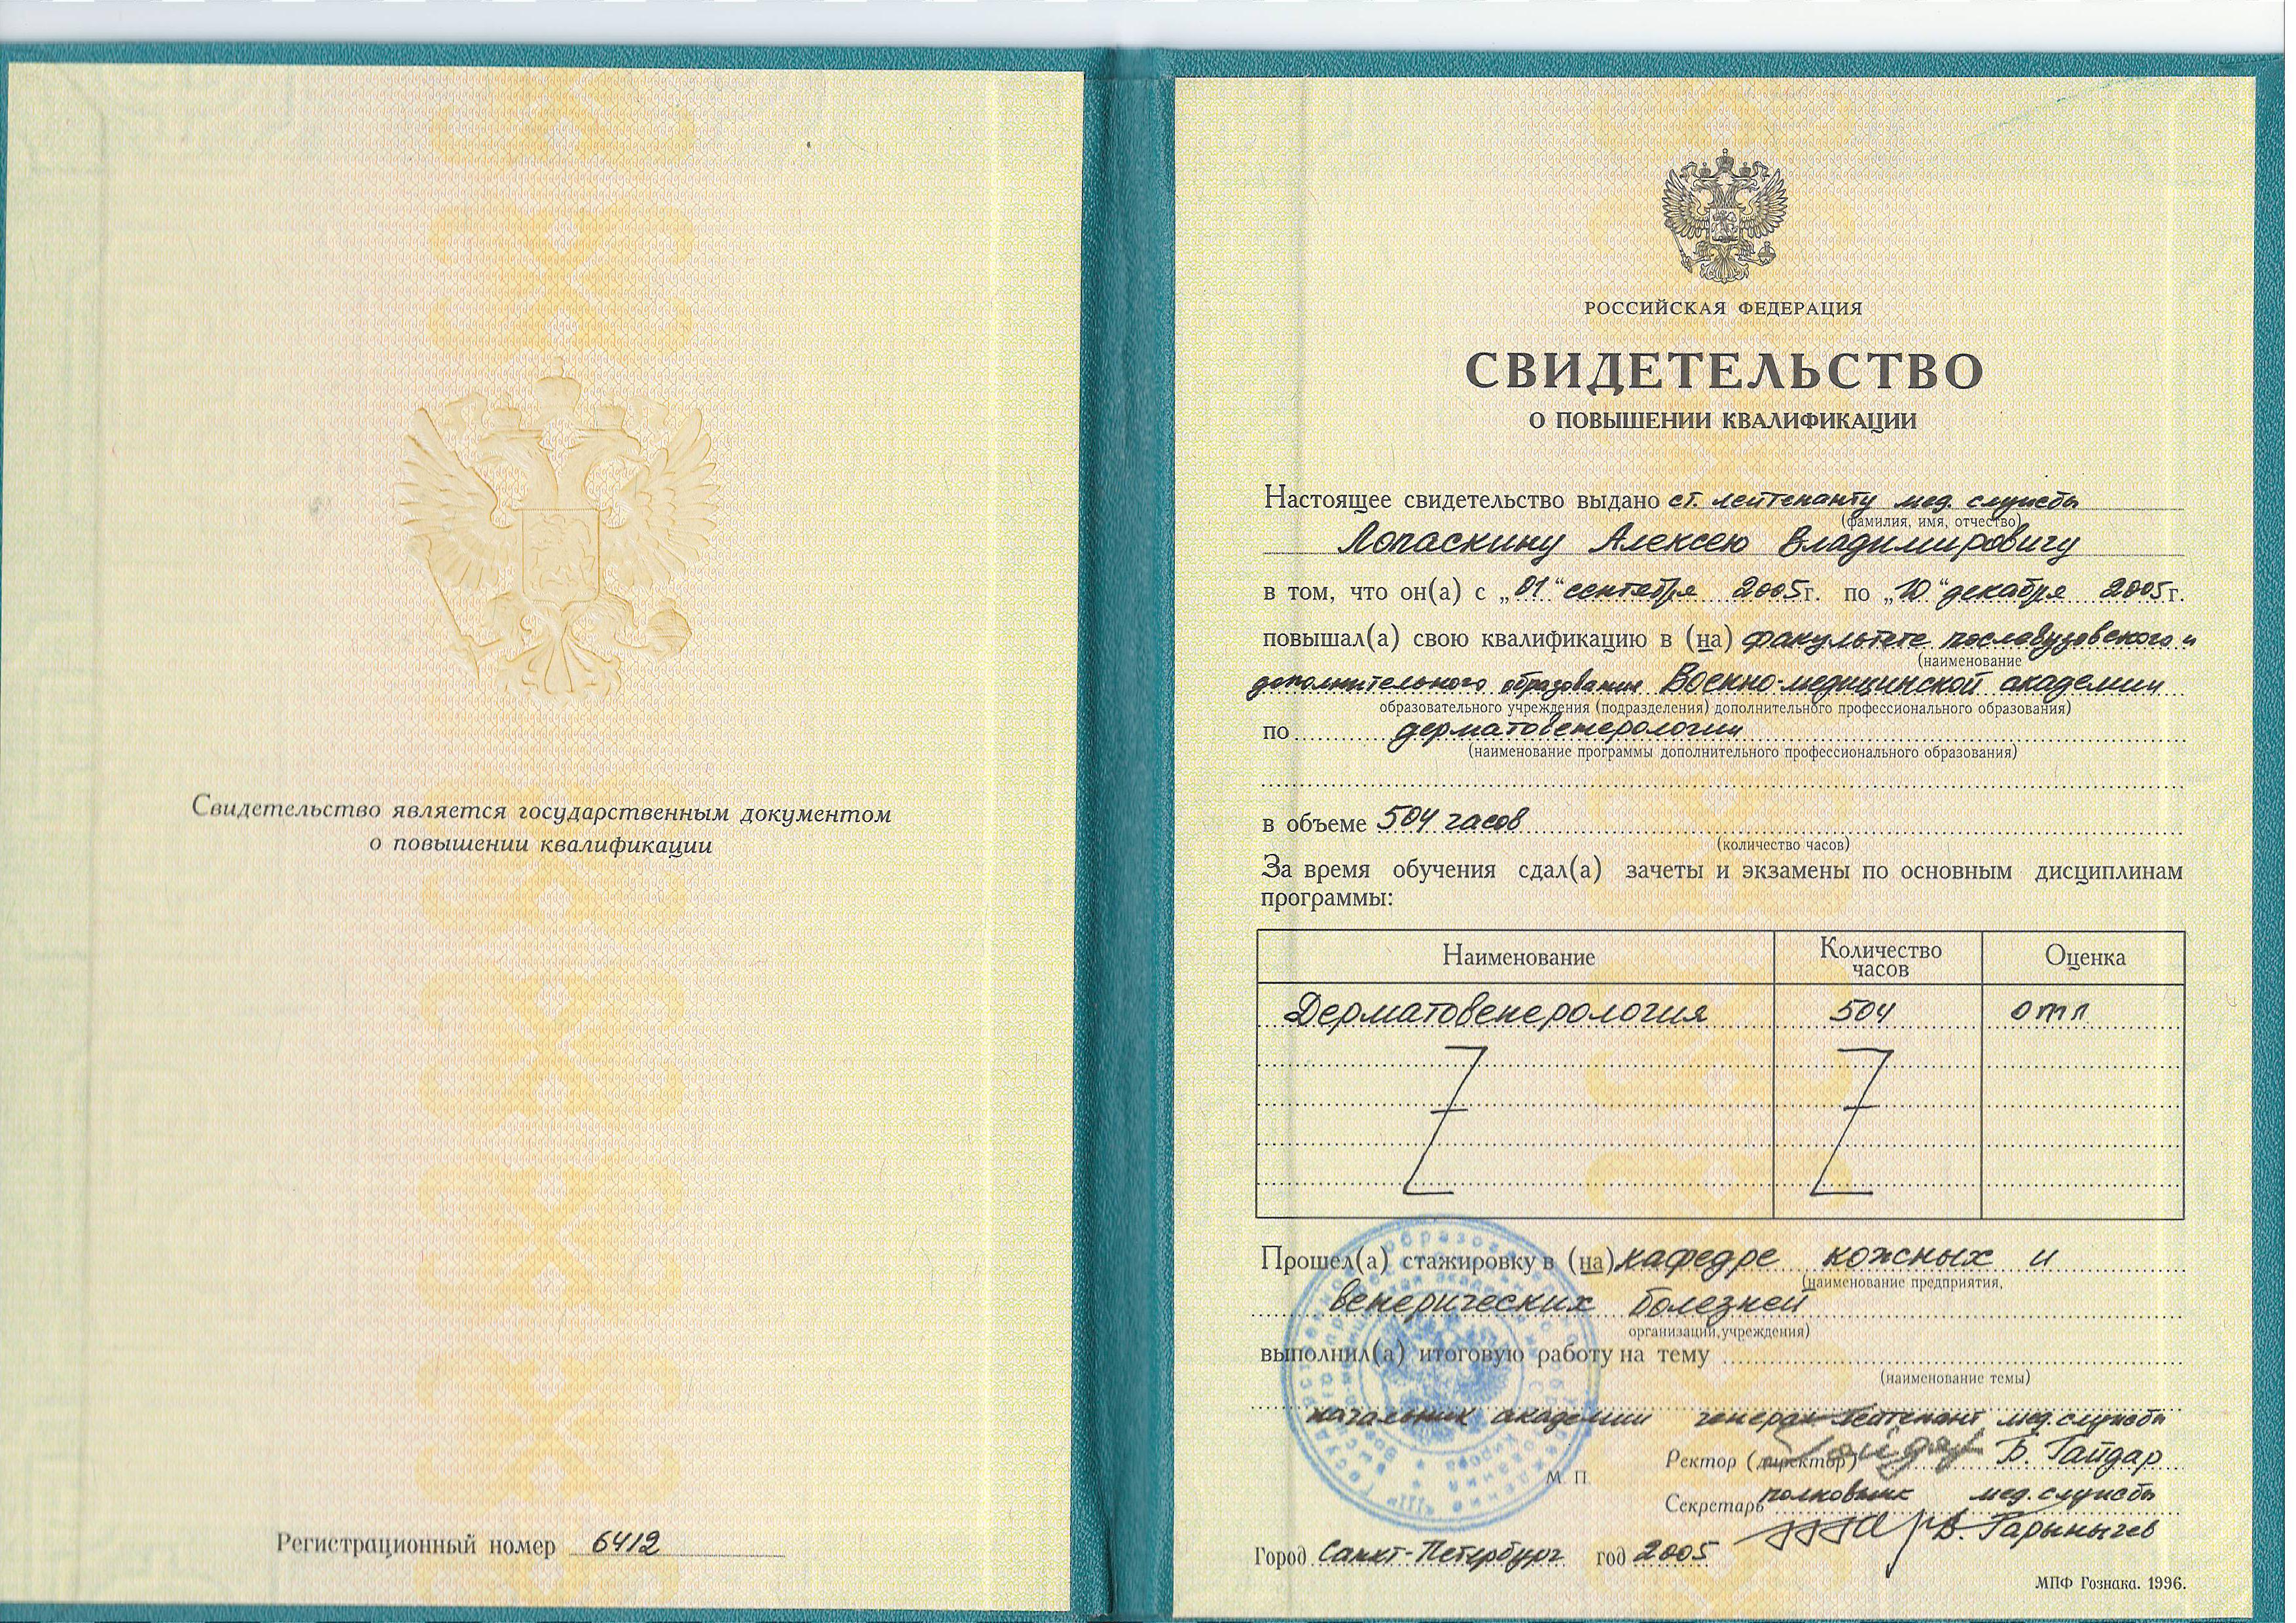 Свидетельство является государственным документом
о повышении квалификации
Регистрационный номер 6412
РОССИЙСКАЯ ФЕДЕРАЦИЯ
СВИДЕТЕЛЬСТВО
О ПОВЫШЕНИИ КВАЛИФИКАЦИИ
Настоящее свидетельство выдано ст. лейтенанту мед. службы
(фамилия, имя, отчество)
Лопаскину Алексею Владимировичу
в том, что он(а) с „01“ сентября 2005г. по „10“ декабря 2005г.
повышал(а) свою квалификацию в (на) факультете послевузовского и
(наименование
дополнительного образования Военно-медицинской академии
образовательного учреждения (подразделения) дополнительного профессионального образования)
по дерматовенерологии
(наименование программы дополнительного профессионального образования)
в объеме 504 часов
(количество часов)
За время обучения сдал(а) зачеты и экзамены по основным дисциплинам
программы:
Наименование Количество часов Оценка
Дерматовенерология 504 отл
Прошел(а) стажировку в (на) кафедре кожных и
(наименование предприятия,
венерических болезней
организации, учреждения)
выполнил(а) итоговую работу на тему
(наименование темы)
начальник академии генерал-лейтенант мед. службы
М. П. Ректор (директор) Б. Гайдар
Секретарь полковник мед. службы
В. Гарынычев
Город Санкт-Петербург год 2005
МПФ Гознака. 1996.